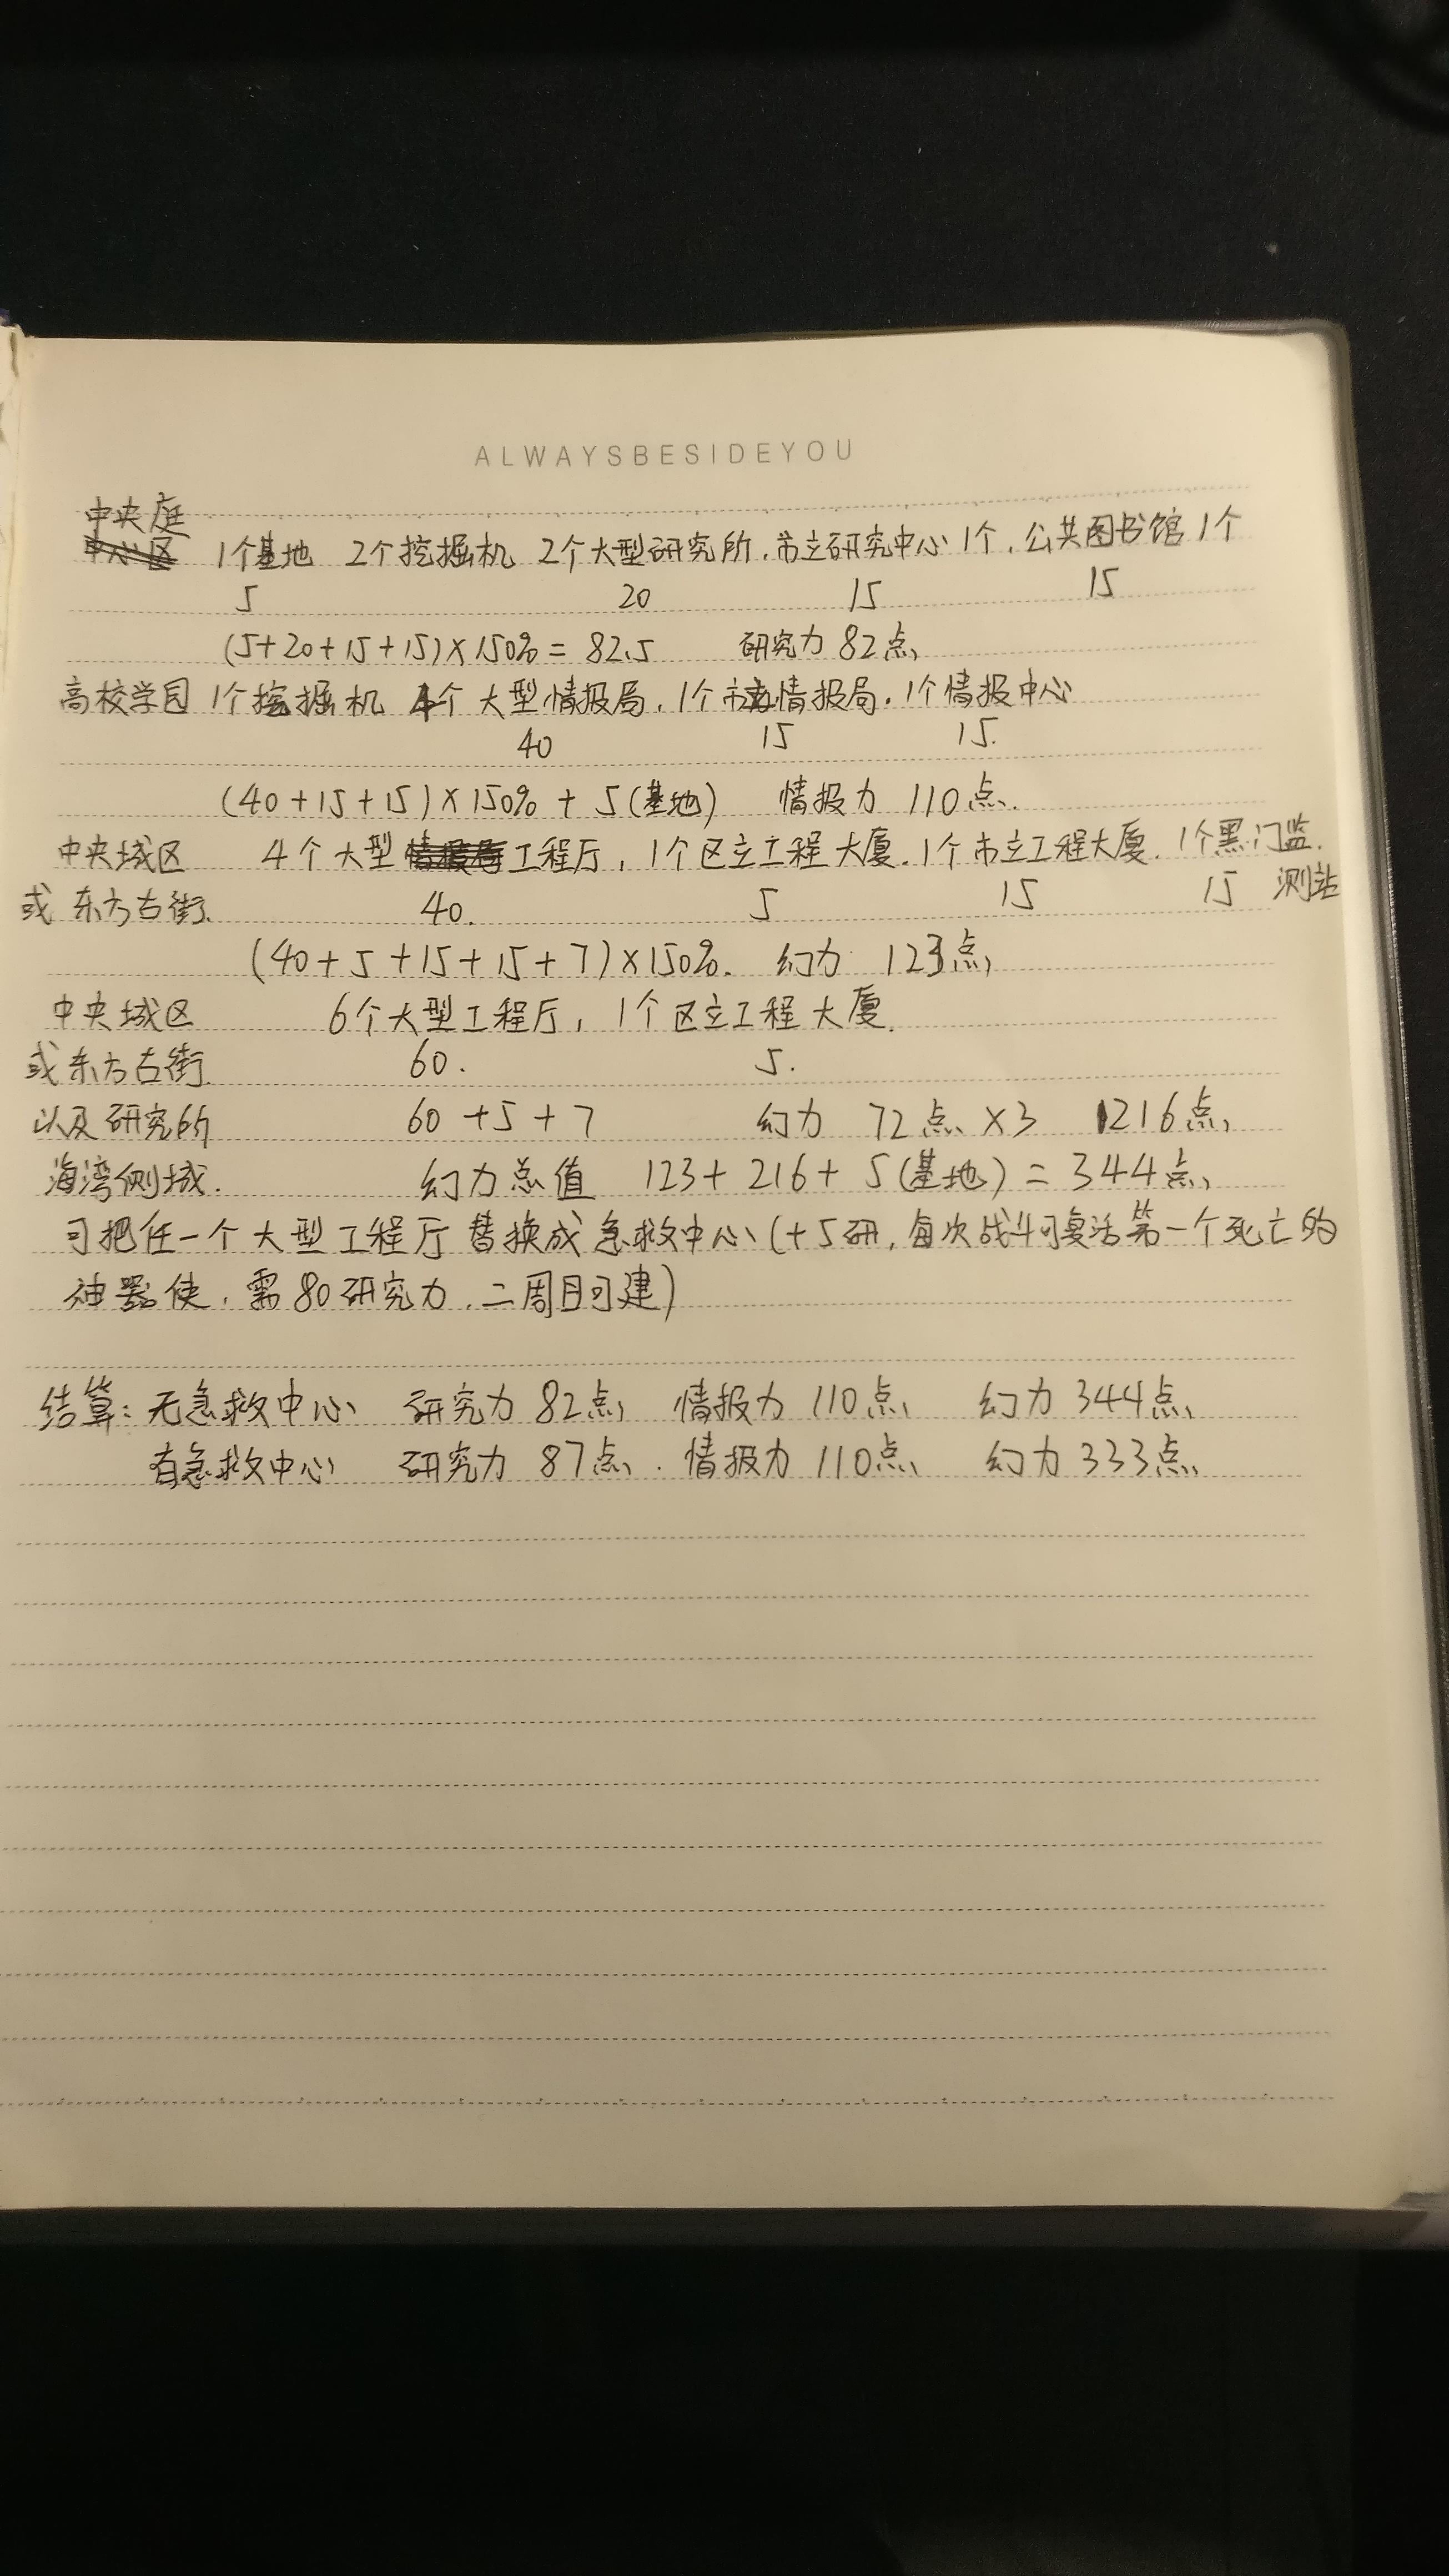 ALWAYSBESIDEYOU
中央庭
1个基地 2个挖掘机 2个大型研究所.市立研究中心1个.公共图书馆1个
5 20 15 15
(5+20+15+15)×150%=82.5 研究力82点
高校学园 1个挖掘机 4个大型情报局.1个市立情报局.1个情报中心
40 15 15.
(40+15+15)×150%+5(基地) 情报力 110点.
中央城区 4个大型工程厅,1个区立工程大厦.1个市立工程大厦.1个黑门监.
或东方古街. 40. 5 15 15 测站
(40+5+15+15+7)×150%. 幻力 123点
中央城区 6个大型工程厅,1个区立工程大厦.
或东方古街. 60. 5.
以及研究所 60+5+7 幻力 72点×3 216点
海湾侧城. 幻力总值 123+216+5(基地)=344点
可把任一个大型工程厅替换成急救中心(+5研,每次战斗可复活第一个死亡的
神器使.需80研究力.二周目可建)
结算:无急救中心 研究力82点 情报力110点 幻力344点
有急救中心 研究力 87点.情报力110点 幻力333点